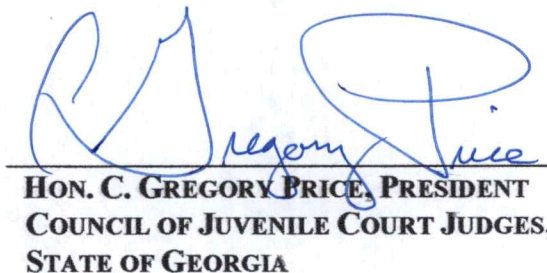 C Gregory Price
HON. C. GREGORY PRICE, PRESIDENT
COUNCIL OF JUVENILE COURT JUDGES,
STATE OF GEORGIA